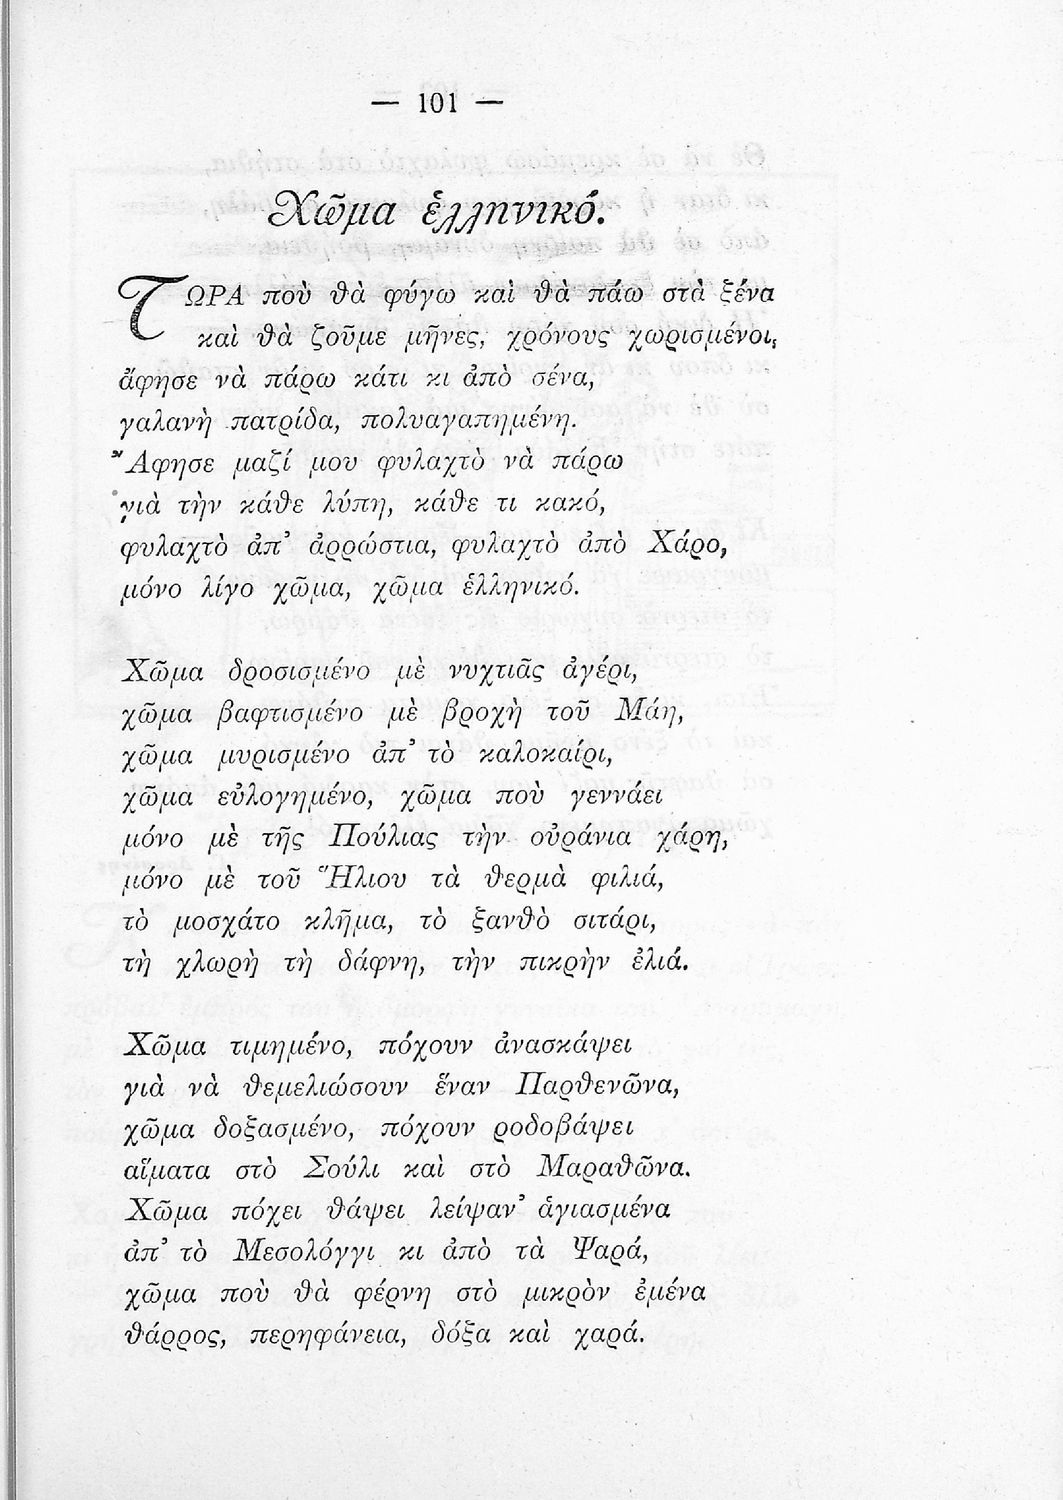 — 101 —
Χῶμα ἑλληνικό.
ΤΩΡΑ ποὺ θὰ φύγω καὶ θὰ πάω στὰ ξένα
καὶ θὰ ζοῦμε μῆνες, χρόνους χωρισμένοι,
ἄφησε νὰ πάρω κάτι κι ἀπὸ σένα,
γαλανὴ πατρίδα, πολυαγαπημένη.
Ἄφησε μαζί μου φυλαχτὸ νὰ πάρω
γιὰ τὴν κάθε λύπη, κάθε τι κακό,
φυλαχτὸ ἀπ’ ἀρρώστια, φυλαχτὸ ἀπὸ Χάρο,
μόνο λίγο χῶμα, χῶμα ἑλληνικό.
Χῶμα δροσισμένο μὲ νυχτιᾶς ἀγέρι,
χῶμα βαφτισμένο μὲ βροχὴ τοῦ Μάη,
χῶμα μυρισμένο ἀπ’ τὸ καλοκαίρι,
χῶμα εὐλογημένο, χῶμα ποὺ γεννάει
μόνο μὲ τῆς Πούλιας τὴν οὐράνια χάρη,
μόνο μὲ τοῦ Ἥλιου τὰ θερμὰ φιλιά,
τὸ μοσχάτο κλῆμα, τὸ ξανθὸ σιτάρι,
τὴ χλωρὴ τὴ δάφνη, τὴν πικρὴν ἐλιά.
Χῶμα τιμημένο, πόχουν ἀνασκάψει
γιὰ νὰ θεμελιώσουν ἕναν Παρθενῶνα,
χῶμα δοξασμένο, πόχουν ροδοβάψει
αἵματα στὸ Σούλι καὶ στὸ Μαραθῶνα.
Χῶμα πόχει θάψει λείψαν’ ἁγιασμένα
ἀπ’ τὸ Μεσολόγγι κι ἀπὸ τὰ Ψαρά,
χῶμα ποὺ θὰ φέρνη στὸ μικρὸν ἐμένα
θάρρος, περηφάνεια, δόξα καὶ χαρά.